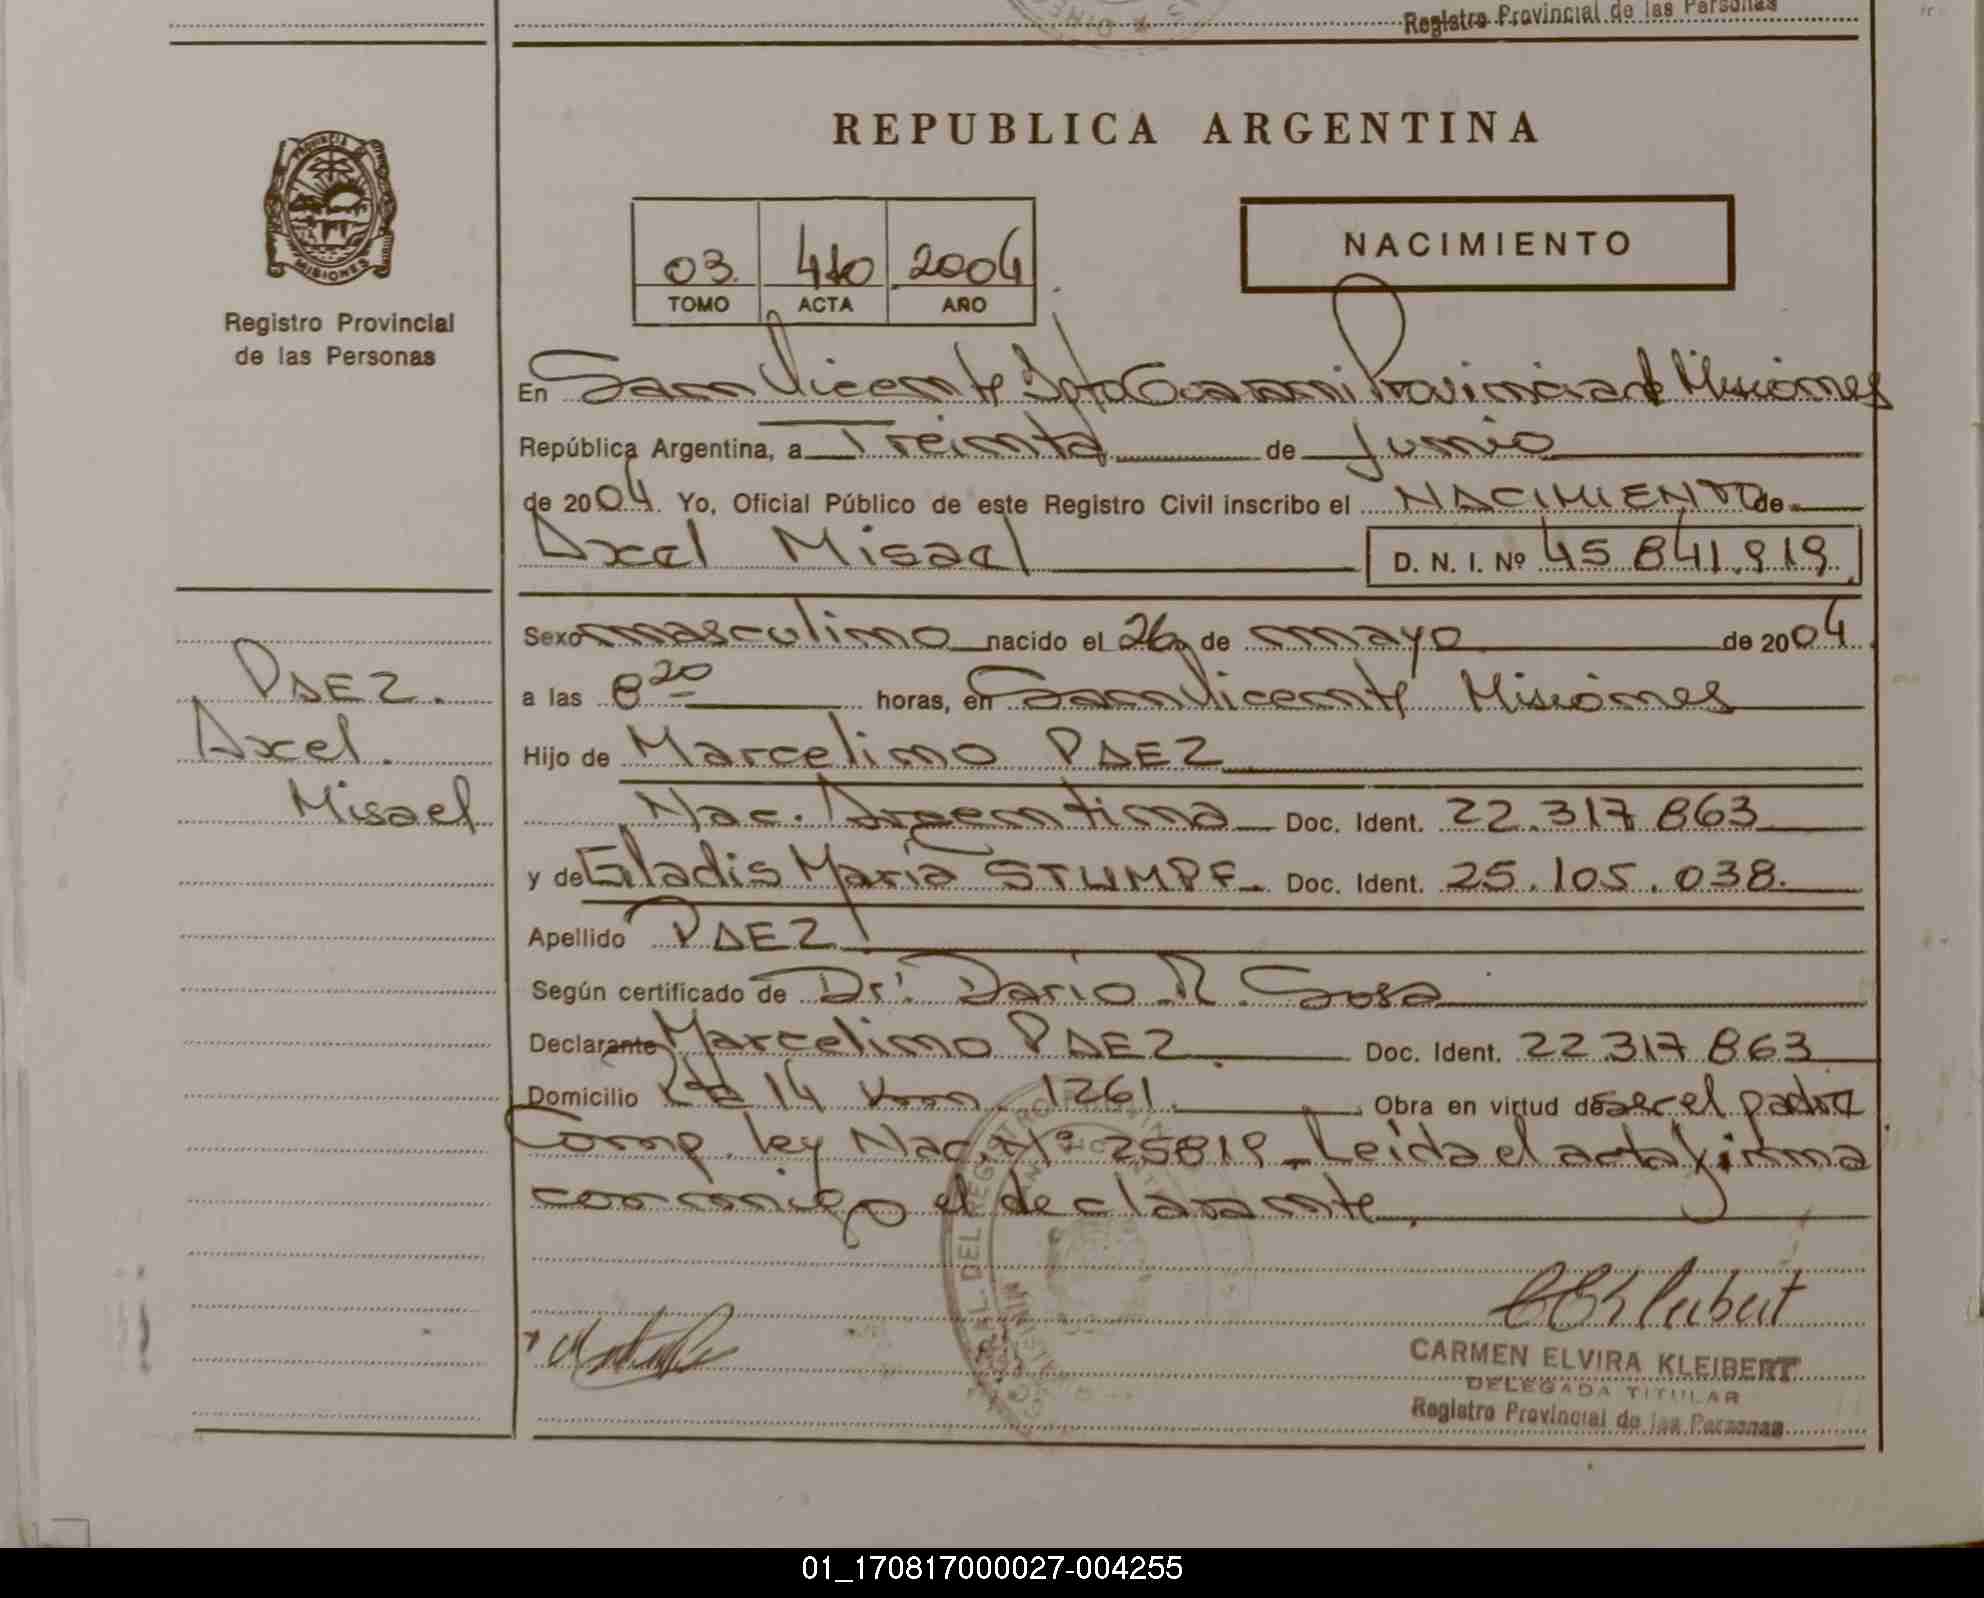 Registro Provincial de las Personas
PROVINCIA DE
MISIONES
Registro Provincial
de las Personas
REPUBLICA ARGENTINA
NACIMIENTO
03 410 2004
TOMO ACTA AÑO
En San Vicente Dpto Guarani Provincia de Misiones
República Argentina, a Treinta de Junio
de 2004. Yo, Oficial Público de este Registro Civil inscribo el NACIMIENTO de
Axel Misael D. N. I. Nº 45 841.919
Sexo masculino nacido el 26 de mayo de 2004
a las 8 20 horas, en San Vicente Misiones
Hijo de Marcelino PAEZ
Nac. Argentina Doc. Ident. 22.317.863
y de Gladis Maria STUMPF Doc. Ident. 25.105.038.
Apellido PAEZ
Según certificado de Dr. Dario R. Sosa
Declarante Marcelino PAEZ Doc. Ident. 22 317 863
Domicilio Rta 14 Km. 1261 Obra en virtud de ser el padre
Comp. ley Nac. Nº 25819 Leida el acta firma
conmigo el declarante.
PAEZ.
Axel
Misael
CARMEN ELVIRA KLEIBERT
DELEGADA TITULAR
Registro Provincial de las Personas
01_170817000027-004255